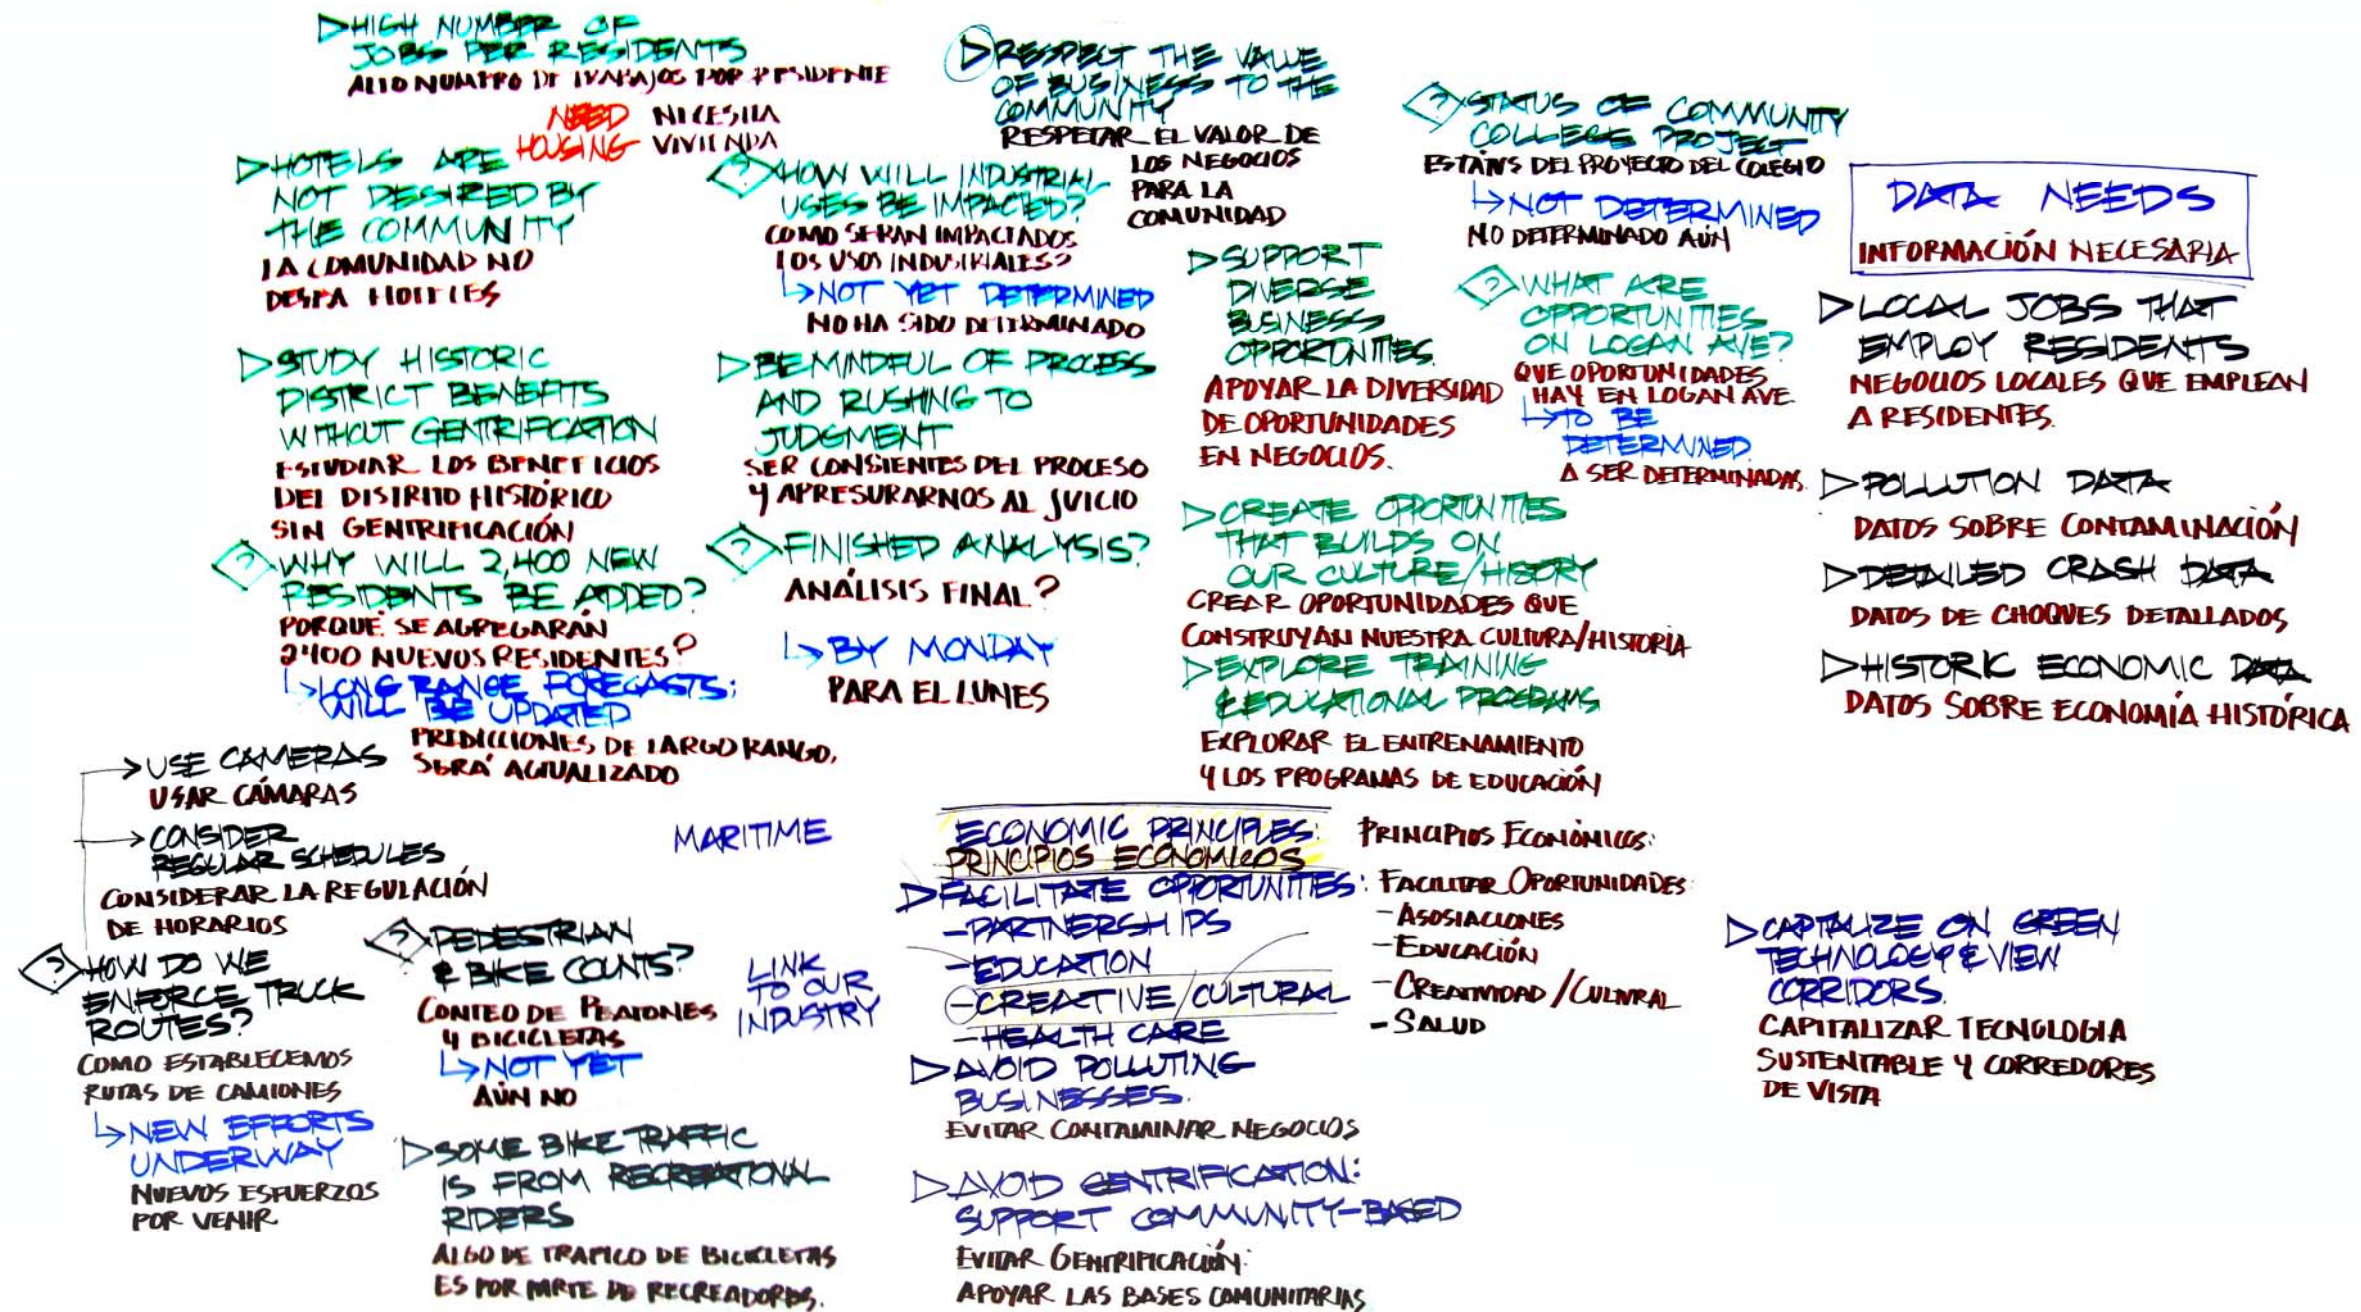 ▷HIGH NUMBER OF
JOBS PER RESIDENTS
ALTO NUMERO DE TRABAJOS POR RESIDENTE
NEED
HOUSING
NECESITA
VIVIENDA
▷HOTELS ARE
NOT DESIRED BY
THE COMMUNITY
LA COMUNIDAD NO
DESEA HOTELES
▷STUDY HISTORIC
DISTRICT BENEFITS
WITHOUT GENTRIFICATION
ESTUDIAR LOS BENEFICIOS
DEL DISTRITO HISTÓRICO
SIN GENTRIFICACIÓN
? WHY WILL 2,400 NEW
RESIDENTS BE ADDED?
PORQUÉ SE AGREGARÁN
2400 NUEVOS RESIDENTES?
↳LONG RANGE FORECASTS:
WILL BE UPDATED
PREDICCIONES DE LARGO RANGO,
SERÁ ACTUALIZADO
▷RESPECT THE VALUE
OF BUSINESS TO THE
COMMUNITY
RESPETAR EL VALOR DE
LOS NEGOCIOS
PARA LA
COMUNIDAD
? HOW WILL INDUSTRIAL
USES BE IMPACTED?
COMO SERAN IMPACTADOS
LOS USOS INDUSTRIALES?
↳NOT YET DETERMINED
NO HA SIDO DETERMINADO
▷BE MINDFUL OF PROCESS
AND RUSHING TO
JUDGMENT
SER CONSIENTES DEL PROCESO
Y APRESURARNOS AL JUICIO
? FINISHED ANALYSIS?
ANÁLISIS FINAL?
↳BY MONDAY
PARA EL LUNES
? STATUS OF COMMUNITY
COLLEGE PROJECT
ESTATUS DEL PROYECTO DEL COLEGIO
↳NOT DETERMINED
NO DETERMINADO AÚN
▷SUPPORT
DIVERSE
BUSINESS
OPPORTUNITIES.
APOYAR LA DIVERSIDAD
DE OPORTUNIDADES
EN NEGOCIOS.
? WHAT ARE
OPPORTUNITIES
ON LOGAN AVE?
QUE OPORTUNIDADES
HAY EN LOGAN AVE
↳TO BE
DETERMINED.
A SER DETERMINADAS.
▷CREATE OPPORTUNITIES
THAT BUILDS ON
OUR CULTURE/HISORY
CREAR OPORTUNIDADES QUE
CONSTRUYAN NUESTRA CULTURA/HISTORIA
▷EXPLORE TRAINING
& EDUCATIONAL PROGRAMS
EXPLORAR EL ENTRENAMIENTO
Y LOS PROGRAMAS DE EDUCACIÓN
DATA NEEDS
INFORMACIÓN NECESARIA
▷LOCAL JOBS THAT
EMPLOY RESIDENTS
NEGOCIOS LOCALES QUE EMPLEAN
A RESIDENTES.
▷POLLUTION DATA
DATOS SOBRE CONTAMINACIÓN
▷DETAILED CRASH DATA
DATOS DE CHOQUES DETALLADOS
▷HISTORIC ECONOMIC DATA
DATOS SOBRE ECONOMÍA HISTÓRICA
→USE CAMERAS
USAR CÁMARAS
→CONSIDER
REGULAR SCHEDULES
CONSIDERAR LA REGULACIÓN
DE HORARIOS
? HOW DO WE
ENFORCE TRUCK
ROUTES?
COMO ESTABLECEMOS
RUTAS DE CAMIONES
↳NEW EFFORTS
UNDERWAY
NUEVOS ESFUERZOS
POR VENIR
? PEDESTRIAN
& BIKE COUNTS?
CONTEO DE PEATONES
Y BICICLETAS
↳NOT YET
AÚN NO
▷SOME BIKE TRAFFIC
IS FROM RECREATIONAL
RIDERS
ALGO DE TRAFICO DE BICICLETAS
ES POR PARTE DE RECREADORES.
MARITIME
LINK
TO OUR
INDUSTRY
ECONOMIC PRINCIPLES:
PRINCIPIOS ECONOMICOS
▷FACILITATE OPPORTUNITIES:
-PARTNERSHIPS
-EDUCATION
-CREATIVE/CULTURAL
-HEALTH CARE
▷AVOID POLLUTING
BUSINESSES.
EVITAR CONTAMINAR NEGOCIOS
▷AVOID GENTRIFICATION:
SUPPORT COMMUNITY-BASED
EVITAR GENTRIFICACIÓN:
APOYAR LAS BASES COMUNITARIAS
PRINCIPIOS ECONÓMICOS:
FACILITAR OPORTUNIDADES:
-ASOSIACIONES
-EDUCACIÓN
-CREATIVIDAD/CULTURAL
-SALUD
▷CAPITALIZE ON GREEN
TECHNOLOGY & VIEW
CORRIDORS.
CAPITALIZAR TECNOLOGIA
SUSTENTABLE Y CORREDORES
DE VISTA